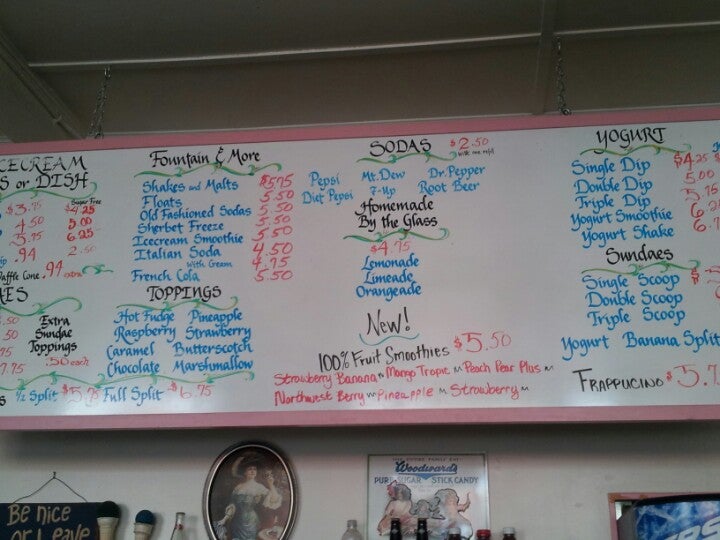 ICECREAM
S or DISH
Sugar Free
$3.75 $4.25
4.50 5.00
5.75 6.25
.94 2.50
Waffle Cone .94 extra
Extra
Sundae
Toppings
.50 each
1/2 Split $5.75 Full Split $6.75
Fountain & More
Shakes and Malts $5.75
Floats 5.50
Old Fashioned Sodas 5.50
Sherbet Freeze 5.50
Icecream Smoothie 5.50
Italian Soda 4.50
With Cream 4.75
French Cola 5.50
TOPPINGS
Hot Fudge Pineapple
Raspberry Strawberry
Caramel Butterscotch
Chocolate Marshmallow
SODAS $2.50
with one refill
Pepsi Mt. Dew Dr. Pepper
Diet Pepsi 7-Up Root Beer
Homemade
By the Glass
$4.75
Lemonade
Limeade
Orangeade
New!
100% Fruit Smoothies $5.50
Strawberry Banana ~ Mango Tropic ~ Peach Pear Plus ~
Northwest Berry ~ Pineapple ~ Strawberry ~
YOGURT
Single Dip $4.25
Double Dip 5.00
Triple Dip 5.75
Yogurt Smoothie
Yogurt Shake
Sundaes
Single Scoop
Double Scoop
Triple Scoop
Yogurt Banana Split
FRAPPUCINO
Be nice
or I Leave
Woodward's
PURE SUGAR STICK CANDY